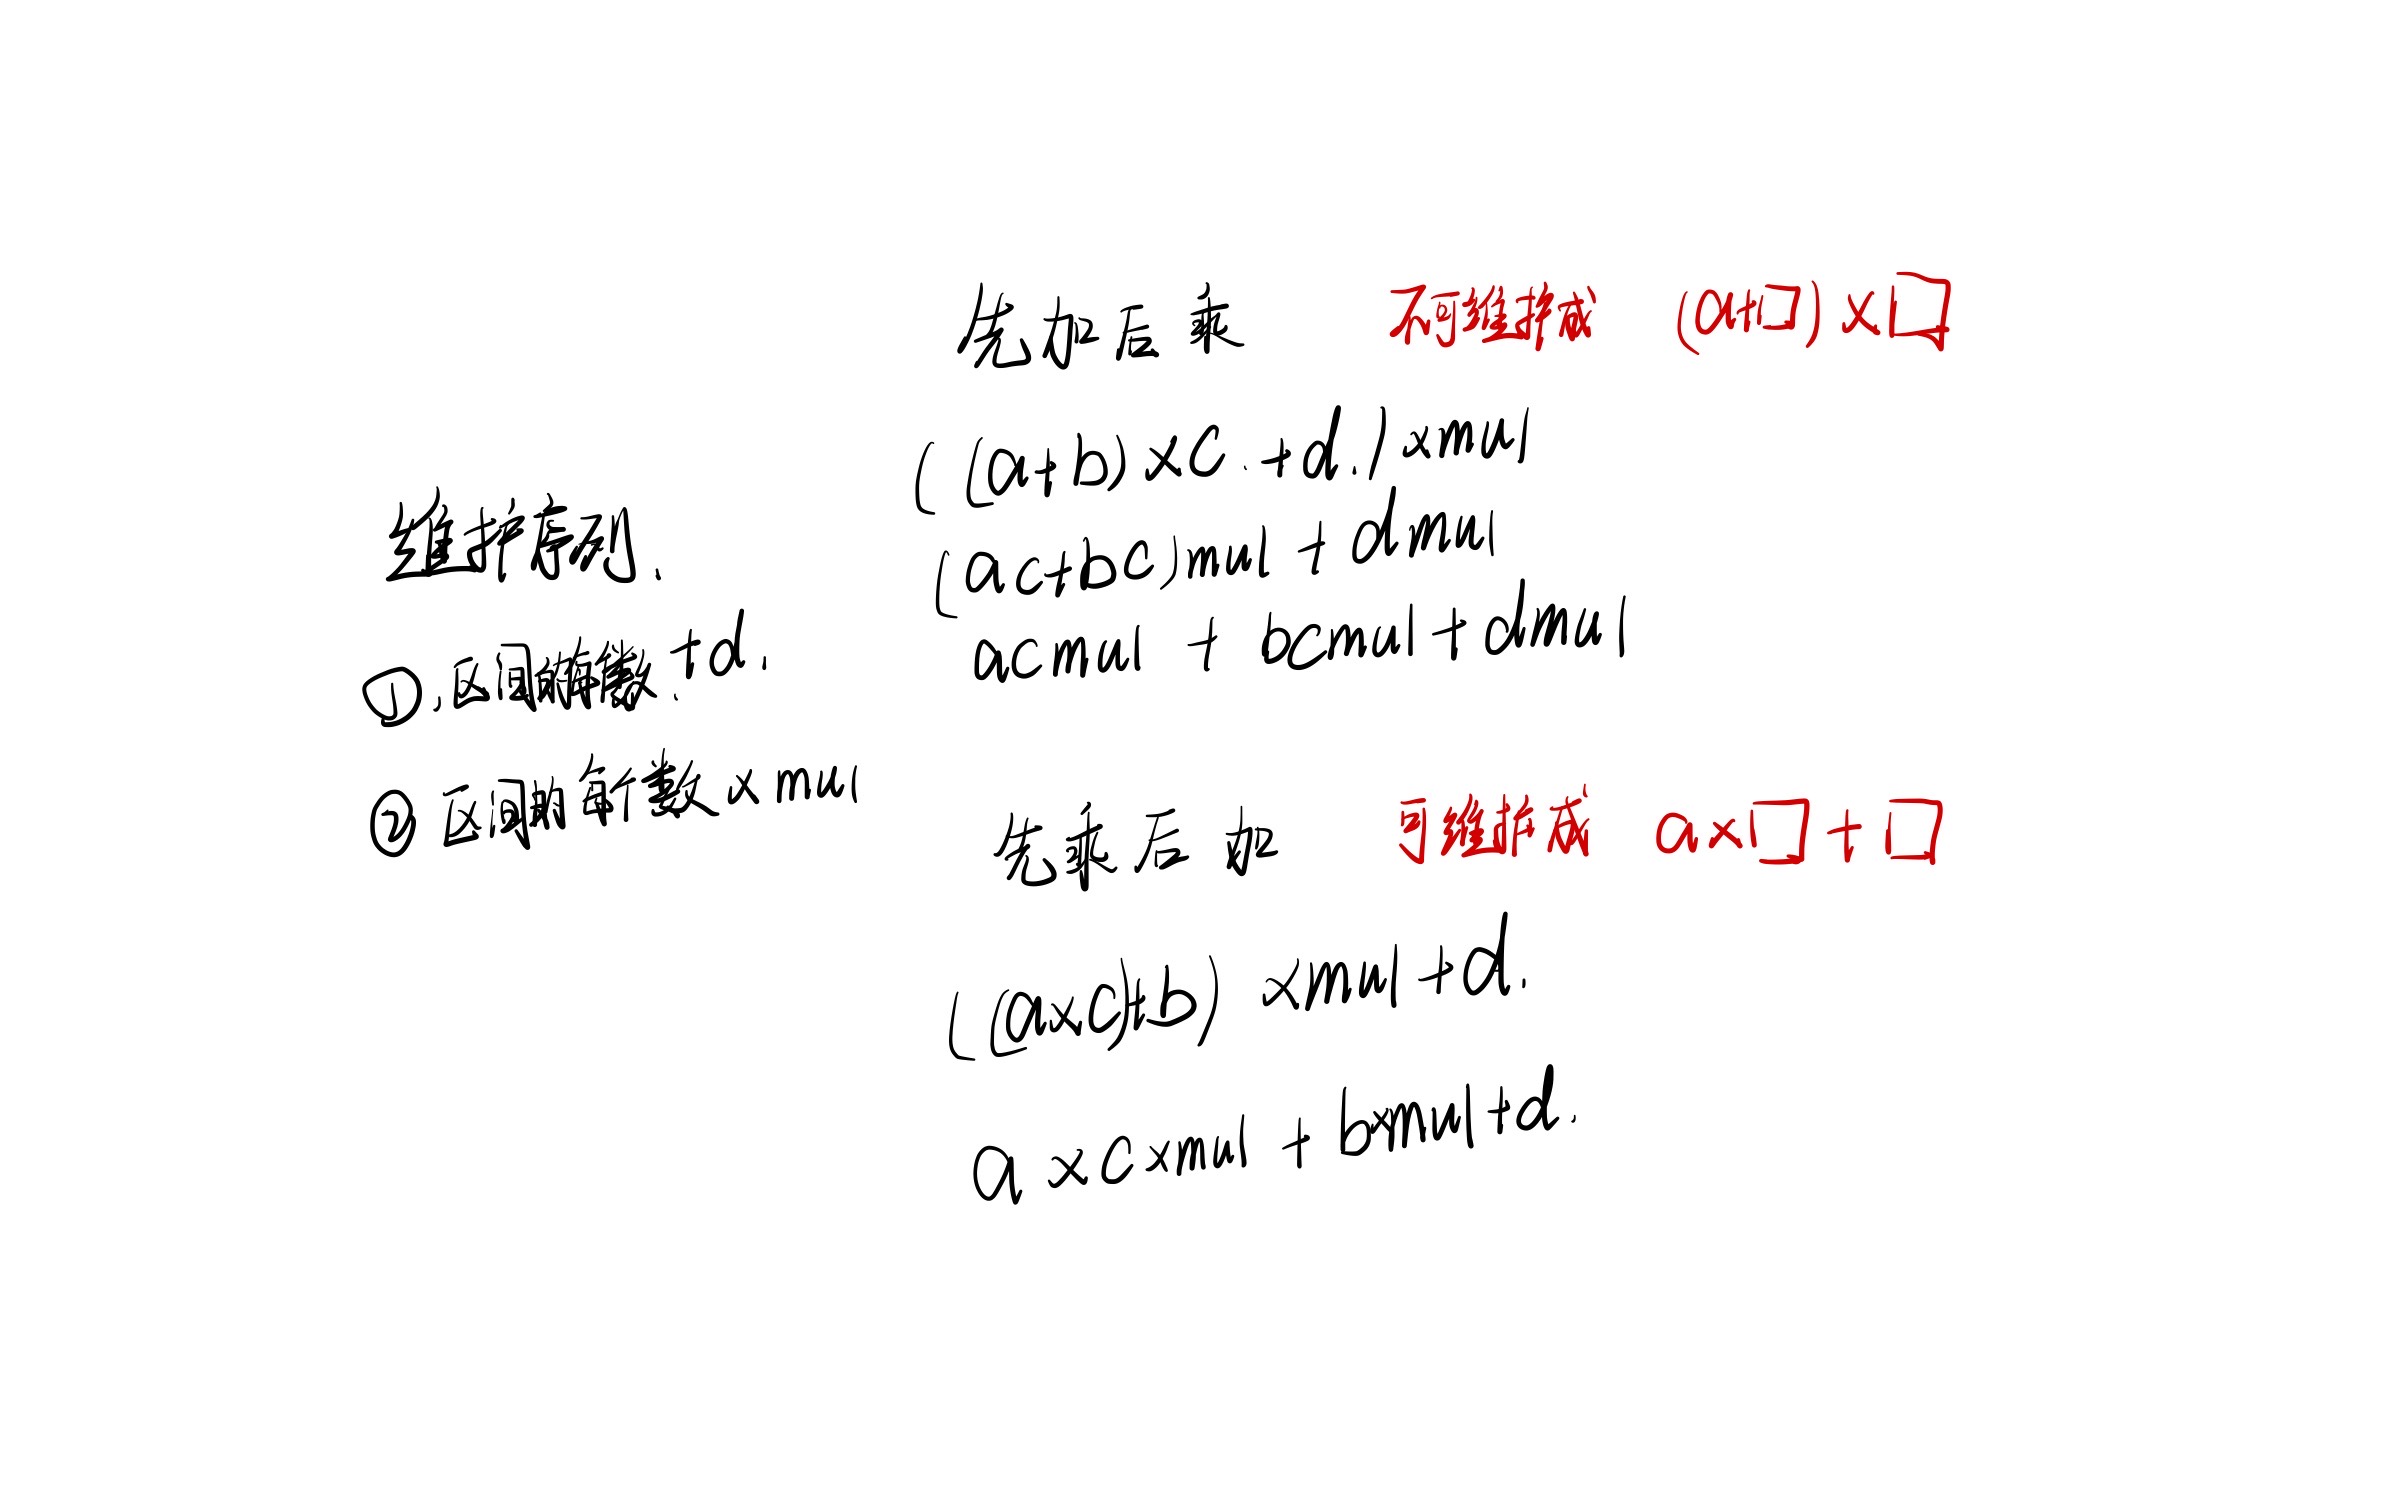 维护序列.
①.区间每个数+d.
② 区间每个数×mul
先加后乘 不可维护成 (a+□)×□
((a+b)×c.+d.)×mul
(ac+bc)mul+dmul
acmul + bcmul+dmul
先乘后加 可维护成 a×□+□
((a×c)+b) ×mul+d.
a×c×mul + b×mul+d.